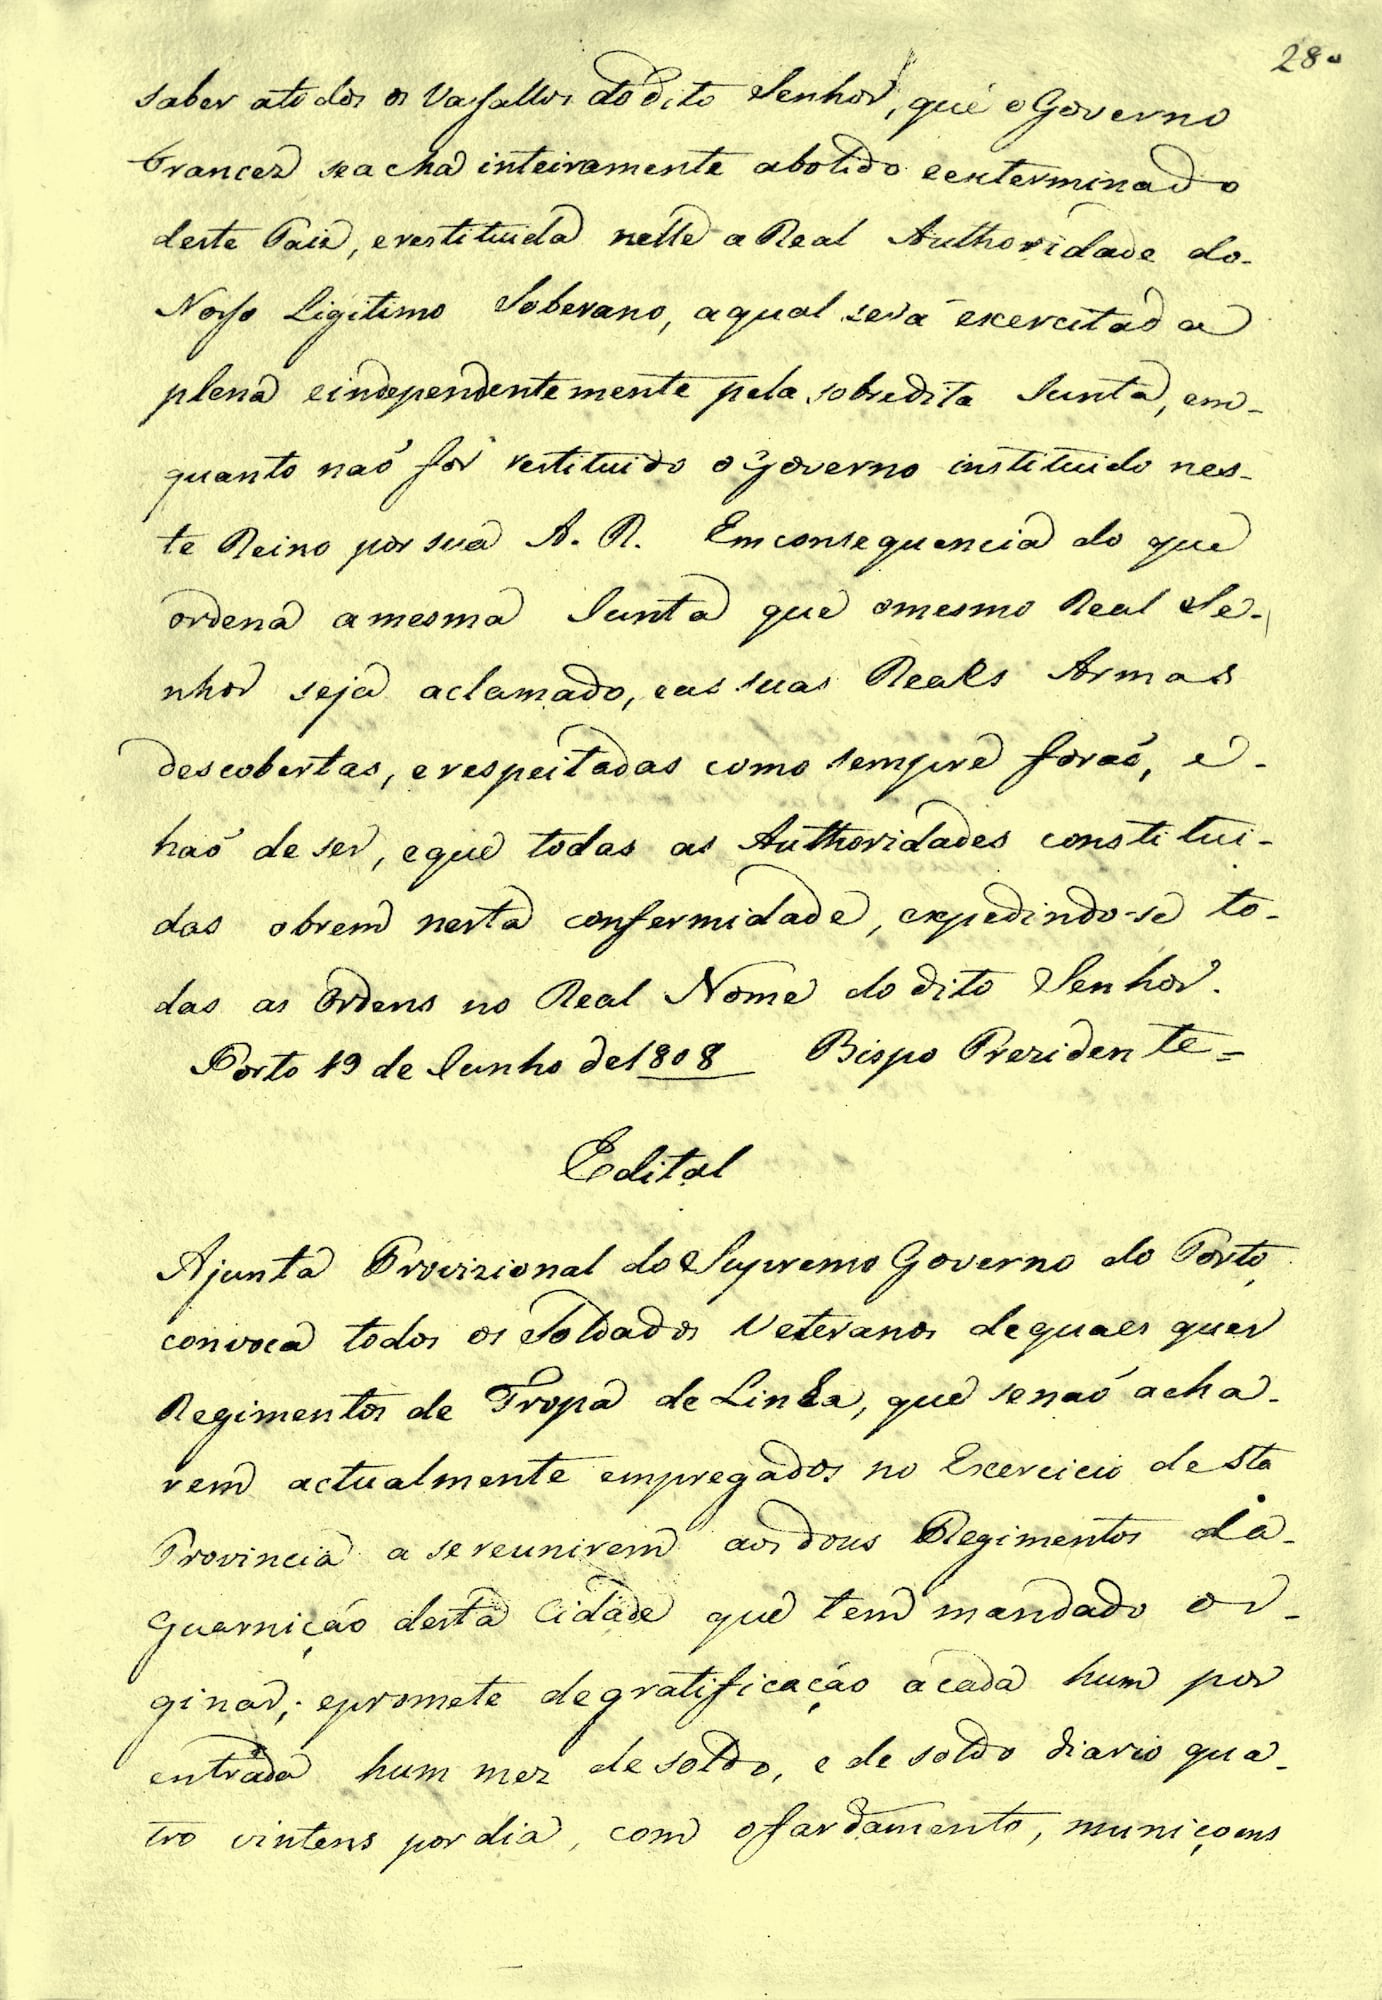 28
saber atodos os Vassallos do dito Senhor, que o Governo
Francez se acha inteiramente abolido e exterminado
deste Paiz, e restituida nelle a Real Authoridade do-
Nosso Ligitimo Soberano, a qual será exercitada
plena e independentemente pela sobredita Junta, em-
quanto naõ for restituido o Governo instituido nes-
te Reino por sua A. R. Em consequencia do que
ordena a mesma Junta que o mesmo Real Se-
nhor seja aclamado, e as suas Reaes Armas
descobertas, e respeitadas como sempre foraõ, e-
haõ de ser, e que todas as Authoridades constitui-
das obrem nesta confermidade, expedindo-se to-
das as Ordens no Real Nome do dito Senhor.
Porto 19 de Junho de 1808 Bispo Prezidente=
Edital
Ajunta Provizional do Supremo Governo do Porto,
convoca todos os Soldados Veteranos de quaes quer
Regimentos de Tropa de Linha, que se naõ acha-
rem actualmente empregados no Exercicio desta
Provincia a se reunirem aos dous Regimentos da-
Guarnição desta Cidade que tem mandado or-
ginar; e promete de gratificação a cada hum por
entrada hum mez de soldo, e de soldo diario qua-
tro vintens por dia, com o fardamento, muniçoens